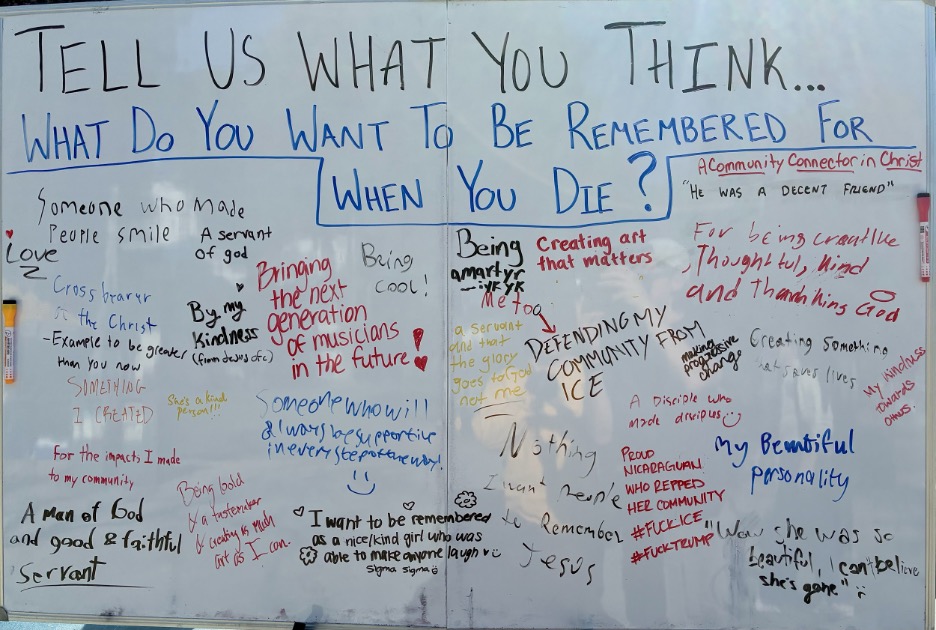 TELL US WHAT YOU THINK...
WHAT DO YOU WANT TO BE REMEMBERED FOR
WHEN YOU DIE?
A Community Connector in Christ
"HE WAS A DECENT FRIEND"
Someone who made
People smile
Love
A servant
of god
Being
cool!
Bringing
the next
generation
of musicians
in the future!
By my
Kindness
(from desus ofc)
Cross bearer
the Christ
- Example to be greater
than you now
SOMETHING
I CREATED
She's a kind
person!!!
For the impacts I made
to my community
A Man of God
and good & faithful
servant
Being bold
& a tastemaker
& creating as much
art as I can.
Someone who will
always be supportive
in every step of the way!
I want to be remembered
as a nice/kind girl who was
able to make anyone laugh
sigma sigma
Being
a martyr
iykyk
Me too
Creating art
that matters
a servant
and that
the glory
goes to God
not me
DEFENDING MY
COMMUNITY FROM
ICE
making
progressive
change
For being
Thoughtful, kind
and Thanking God
Creating something
that saves lives
My kindness
towards
others.
A Disciple who
made discipus
My Beautiful
personality
Nothing
I want people
to Remember
Jesus
PROUD
NICARAGUAN
WHO REPPED
HER COMMUNITY
#FUCK ICE
#FUCKTRUMP
"Wow she was so
beautiful, I can't believe
she's gone"